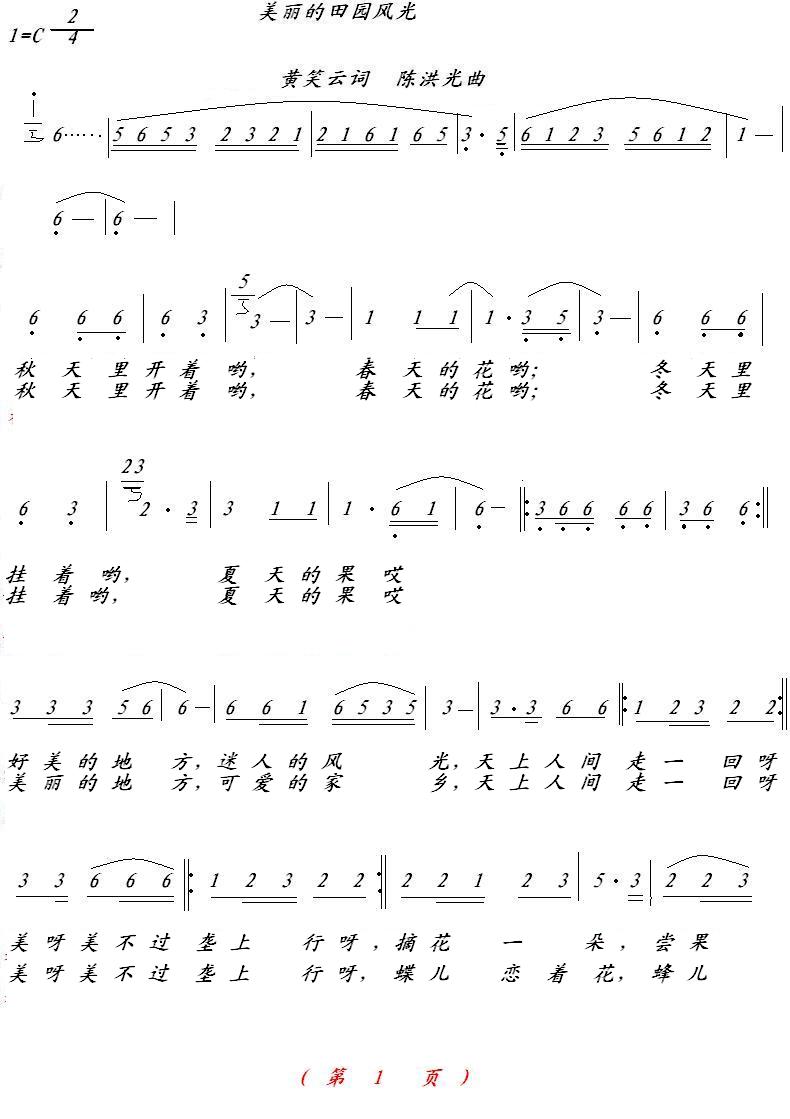 美丽的田园风光
1=C 2/4
黄笑云词 陈洪光曲
6…… | 5 6 5 3 2 3 2 1 | 2 1 6 1 6 5 | 3 · 5 | 6 1 2 3 5 6 1 2 | 1 — |
6 — | 6 — |
5
6 6 6 | 6 3 | 3 — | 3 — | 1 1 1 | 1 · 3 5 | 3 — | 6 6 6 |
秋 天 里 开 着 哟, 春 天 的 花 哟; 冬 天 里
秋 天 里 开 着 哟, 春 天 的 花 哟; 冬 天 里
23
6 3 | 2 · 3 | 3 1 1 | 1 · 6 1 | 6 — ‖: 3 6 6 6 6 | 3 6 6 :‖
挂 着 哟, 夏 天 的 果 哎
挂 着 哟, 夏 天 的 果 哎
3 3 3 5 6 | 6 — | 6 6 1 6 5 3 5 | 3 — | 3 · 3 6 6 ‖: 1 2 3 2 2 :‖
好 美 的 地 方, 迷 人 的 风 光, 天 上 人 间 走 一 回 呀
美 丽 的 地 方, 可 爱 的 家 乡, 天 上 人 间 走 一 回 呀
3 3 6 6 6 ‖: 1 2 3 2 2 :‖ 2 2 1 2 3 | 5 · 3 | 2 2 3
美 呀 美 不 过 垄 上 行 呀, 摘 花 一 朵, 尝 果
美 呀 美 不 过 垄 上 行 呀, 蝶 儿 恋 着 花, 蜂 儿
( 第 1 页 )